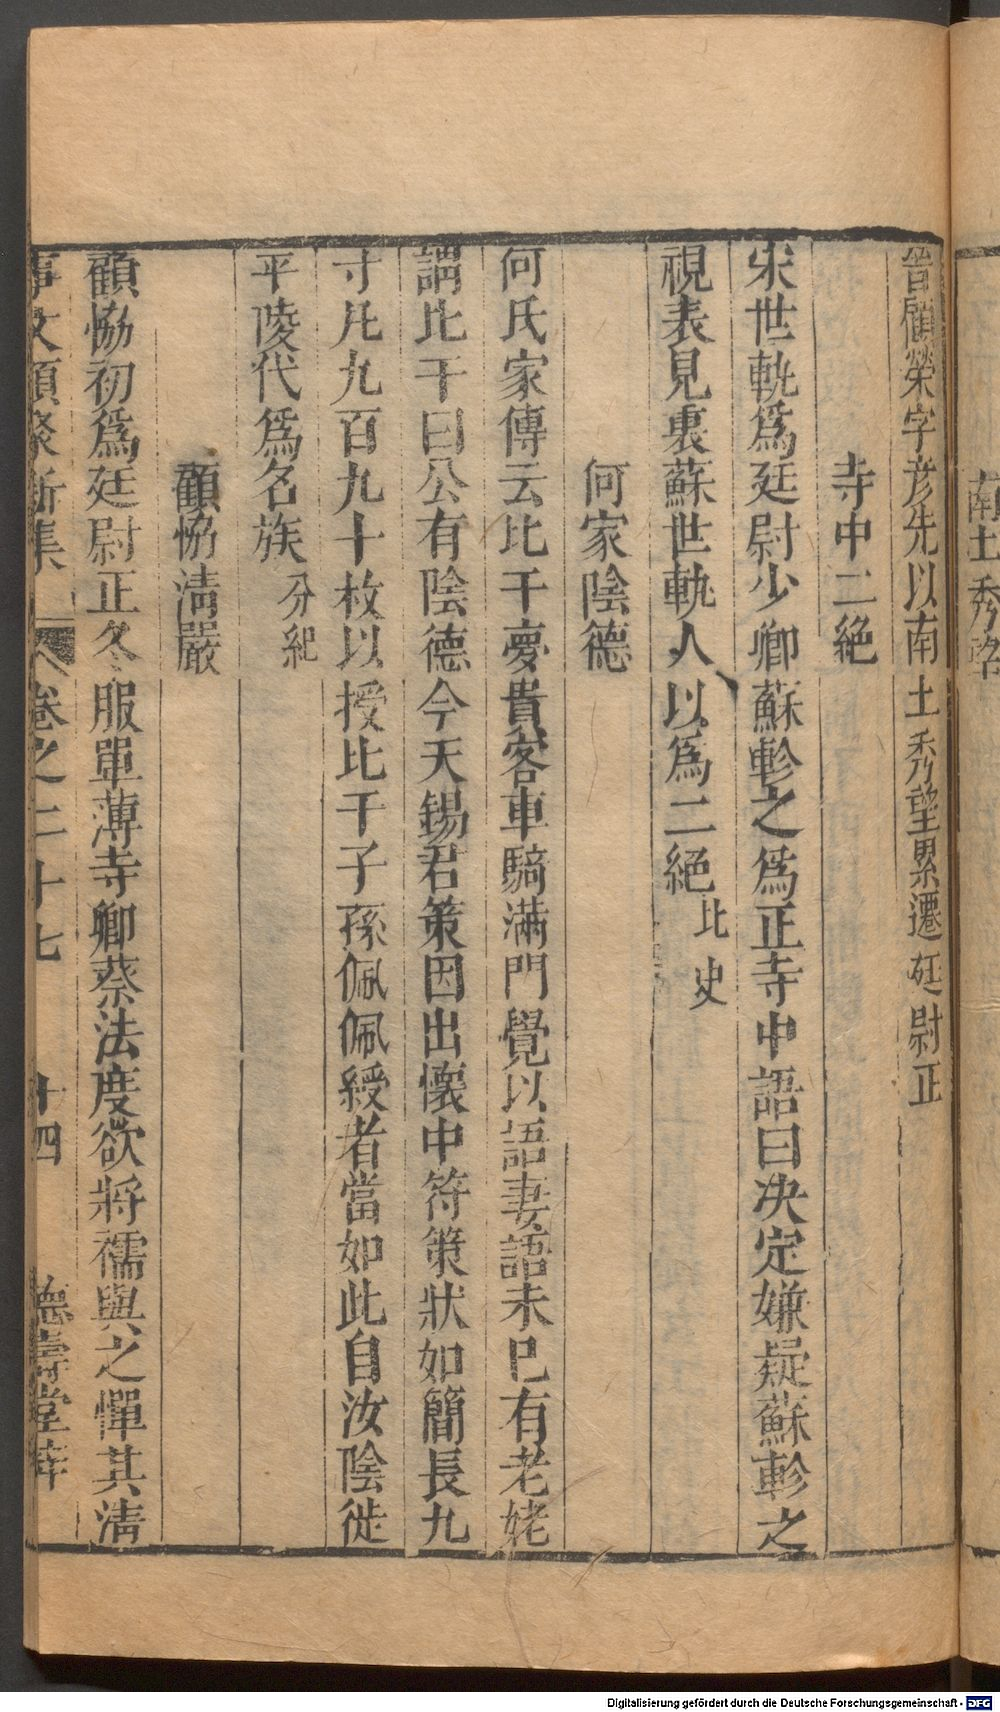 南土秀望
晉顧榮字彦先以南土秀望累遷廷尉正
寺中二絕
宋世軌爲廷尉少卿蘇軫之爲正寺中語曰决定嫌疑蘇軫之
視表見裏蘇世軌人以爲二絕北史
何家陰德
何氏家傳云比干夢貴客車騎滿門覺以語妻語未巳有老姥
謂比干曰公有陰德今天錫君策因出懷中符策狀如簡長九
寸凡九百九十枚以授比干子孫佩佩綬者當如此自汝陰徙
平陵代爲名族分紀
顧恊淸嚴
顧恊初爲廷尉正冬服單薄寺卿蔡法度欲將襦與之憚其淸
事文類聚新集 卷之二十七 十四 德壽堂梓
Digitalisierung gefördert durch die Deutsche Forschungsgemeinschaft - DFG